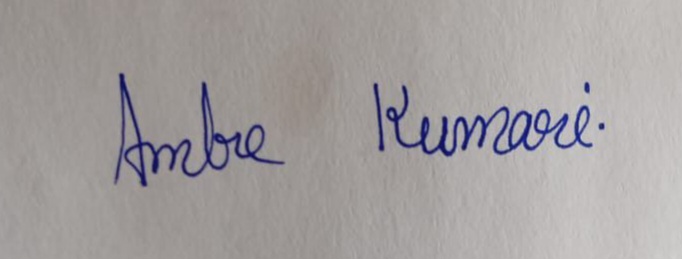 Ambre Kumari.